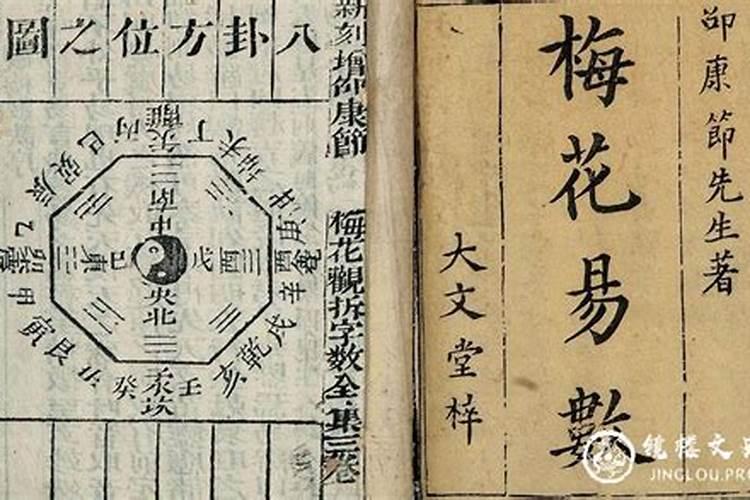 邵康節先生著
梅花易數
大文堂梓
新刻增邵康節
梅花觀拆字數全集三卷
八卦方位之圖
巳巽辰
丙
離
丁
未坤申
乙
甲
庚
辛
寅艮丑
癸
坎
壬
亥乾戌
南
中央
北
東
己
戊
JINGLOU.PR